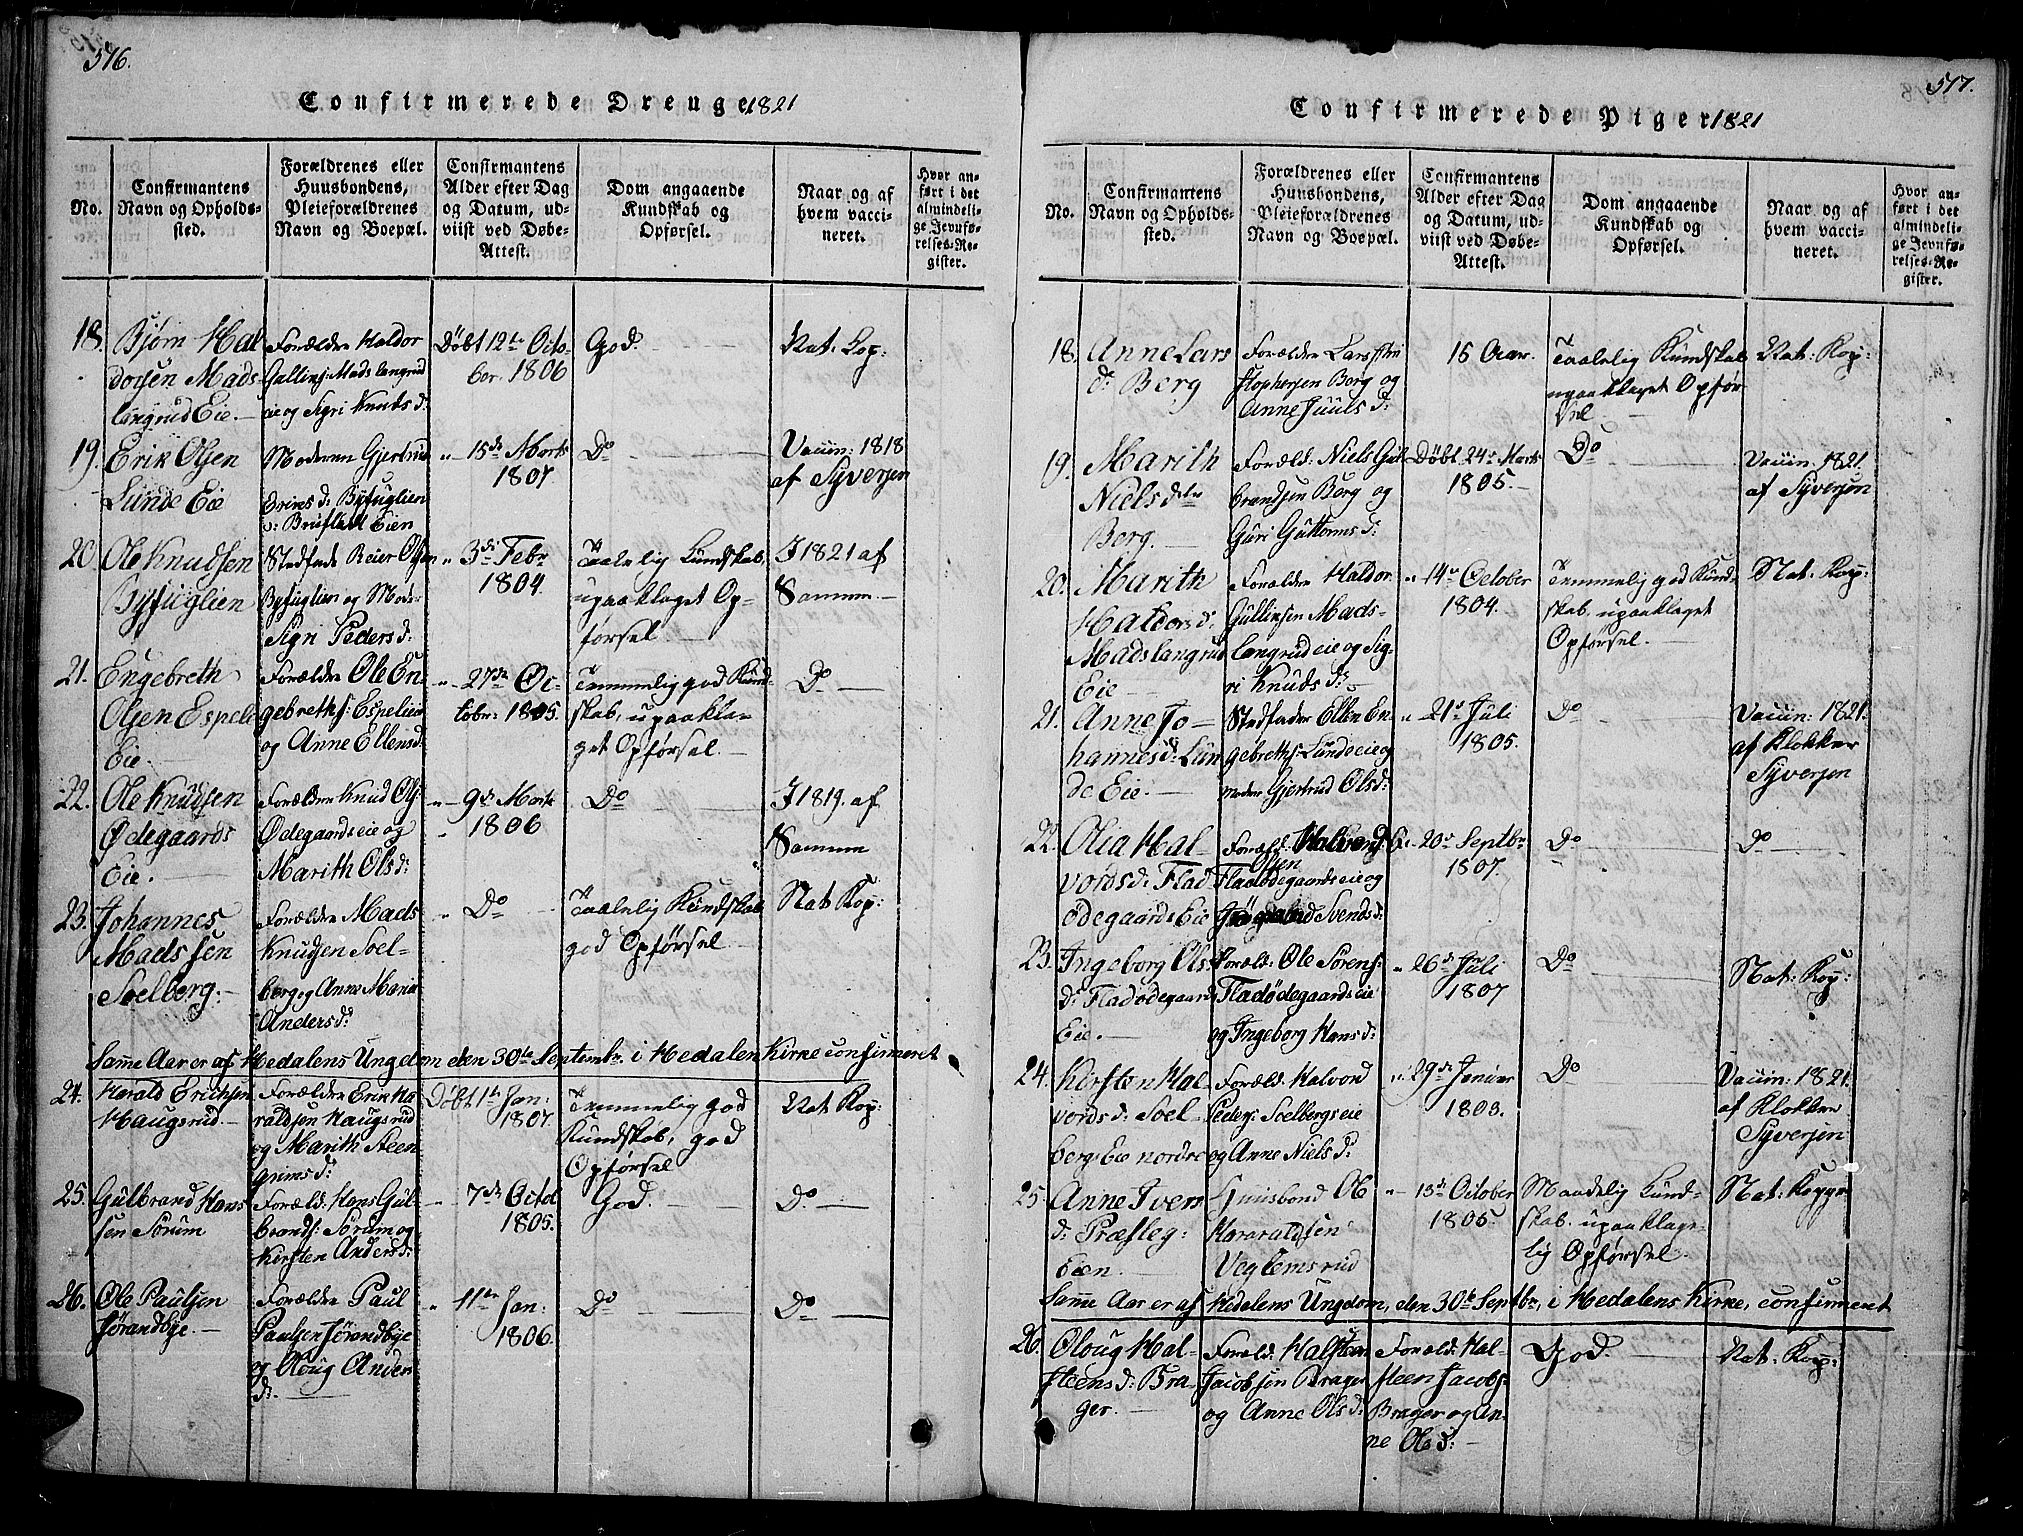 576.
Confirmerede Drenge 1821
No.
Confirmantens
Navn og Opholds-
sted.
Forældrenes eller
Huusbondens,
Pleieforældrenes
Navn og Boepæl.
Confirmantens
Alder efter Dag
og Datum, ud-
viist ved Døbe-
Attest.
Dom angaaende
Kundskab og
Opførsel.
Naar og af
hvem vacci-
neret.
Hvor an-
ført i det
almindeli-
ge Jevnfø-
relses-Re-
gister.
18.
Bjørn Hal
dorsen Mads-
langrud Eie.
Forældre Haldor
Gullins: Madslangrud
eie og Sigri Knuds d:
Døbt 12te Octo-
ber. 1806
God.
Nat. Kop:
19.
Erik Olsen
Lunde Eie
Moderen Gjertrud
Erics d: Byfuglien
d: Bruflat Eien
" 15de Marts
1807
Do
Vaccin: 1818
af Syversen
20.
Ole Knudsen
Byfuglien
Stedfader Reier Olsen
Byfuglien og Moder
Sigri Peders d:
" 3de Febr
1804.
Taalelig Kundskab,
upaaklaget Op-
førsel
I 1821 af
Samme.
21.
Engebreth
Olsen Espeli
Eie.
Forældre Ole En
gebreths: Espelien
og Anne Ellens d:
" 27de Oc-
tobr: 1805.
Temmelig god Kund-
skab, upaakla-
get Opførsel.
Do
22.
Ole Knudsen
Ødegaards
Eie.
Forældre Knud Ols:
Ødegaards eie og
Marith Ols d:
" 9de Marts
1806
Do
I 1819. af
Samme
23.
Johannes
Madssen
Soelberg.
Forældre Mads
Knudsen Soel-
berg og Anne Marie
Anders d:
" Do
Taalelig Kundskab
god Opførsel.
Nat Kop:
Samme Aar er af Hedalens Ungdom den 30te Septembr. i Hedalen Kirke confirmeret
24.
Harald Erichsen
Haugsrud.
Forældre Erik Ha
raldsen Haugsrud
og Marith Steen
grims d:
Døbt 1te Jan:
1807.
Temmelig god
Kundskab, god
Opførsel
Nat Kop:
25.
Gulbrand Hans
sen Sørum
Foræld: Hans Gul
brands: Sørum og
Kirsten Anders d:
7de Octob
1805.
God.
Do.
26.
Ole Paulsen
Jørandbye.
Forældre Paul
Paulsen Jørandbye
og Oloug Anders
d:
" 11te Jan:
1806.
Do
Do
517.
Confirmerede Piger 1821
No.
Confirmantens
Navn og Opholds-
sted.
Forældrenes eller
Huusbondens,
Pleieforældrenes
Navn og Boepæl.
Confirmantens
Alder efter Dag
og Datum, ud-
viist ved Døbe-
Attest.
Dom angaaende
Kundskab og
Opførsel.
Naar og af
hvem vacci-
neret.
Hvor an-
ført i det
almindeli-
ge Jevnfø-
relses-Re-
gister.
18.
Anne Lars
d: Berg
Forældre Lars Kri
stophersen Berg og
Anne Juuls d:
15 Aar.
Taalelig Kundskab
upaaklaget Opfør
sel
Nat: Kop:
19.
Marith
Niels dtr
Berg.
Foræld: Niels Gul
brandsen Berg og
Guri Guttorms d:
Døbt 24de Marts
1805.
Do
Vaccin: 1821.
af Syversen
20.
Marith
Haldors d:
Madslangrud
Eie
Forældre Haldor
Gullinsen Mads-
langrud eie og Sig-
ri Knuds d:
" 14de October
1804.
Temmelig god Kund-
skab. upaaklaget
Opførsel.
Nat: Kop:
21.
Anne Jo-
hannes d: Lun
de Eie.
Stedfader Ellen En
gebreths: Lunde eie og
moder Gjertrud Ols d:
" 21de Juli
1805.
Do
Vaccin: 1821.
af Klokker
Syversen
22.
Olia Hal-
vords d: Flad
ødegaards Eie
Foræld: Halvord
Olsen
Fladødegaards eie og
Svends d:
20de Septbr
1807.
Do
Do
23.
Ingeborg Ols
d: Fladødegaards
Eie.
Foræld: Ole Sørens:
Fladødegaards eie
og Ingeborg Hans d:
" 26de Juli
1807
Do
Nat: Kop:
24.
Kirsten Hal
vords d: Soel
berg Eie nordre
Foræld: Halvord
Peders: Soelbergs eie
og Anne Niels d:
" 29de Januar
1803.
Do
Vaccin: 1821.
af Klokker
Syversen
25
Anne Ivers
d: Præsteg:
Eien
Huusbond Ole
Haraldsen
Veglemsrud
" 13de October
1805.
Maadelig Kund-
skab. upaaklage-
lig Opførsel.
Nat: Kopper
Samme Aar er af Hedalens Ungdom, den 30te Septbr, i Hedalens Kirke, confirmeret
26.
Oloug Hal-
steens d: Bra-
ger.
Foræld: Halsteen
Jacobsen Brager
og Anne Ols d:
Foræld: Hal-
steen Jacobs:
Brager og An-
ne Ols d:
God.
Nat: Kop: